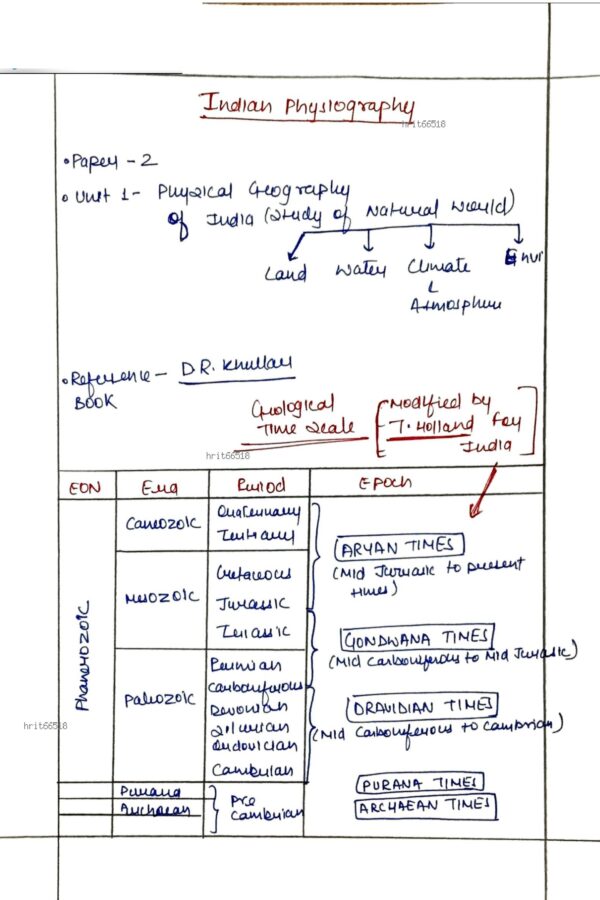 Indian Physiography
hrit66518
• Paper - 2
• Unit 1 - Physical Geography
of India (Study of Natural World)
Land Water Climate Envi
Atmosphere
• Reference - D R. Khullar
BOOK
Geological
Time Scale
Modified by
T. Holland for
India
hrit66518
EON Era Period Epoch
Phanerozoic
Caneozoic
Quaternary
Tertiary
ARYAN TIMES
(Mid Jurrasic to present
times)
Mesozoic
Cretaceous
Jurassic
Terassic
GONDWANA TIMES
(Mid Carboniferous to Mid Jurasic)
Paleozoic
Permian
Carboniferous
Devonian
Silurian
Ordovician
Cambrian
DRAVIDIAN TIMES
(Mid Carboniferous to Cambrian)
hrit66518
Purana
Archaean
Pre
Cambrian
PURANA TIMES
ARCHAEAN TIMES